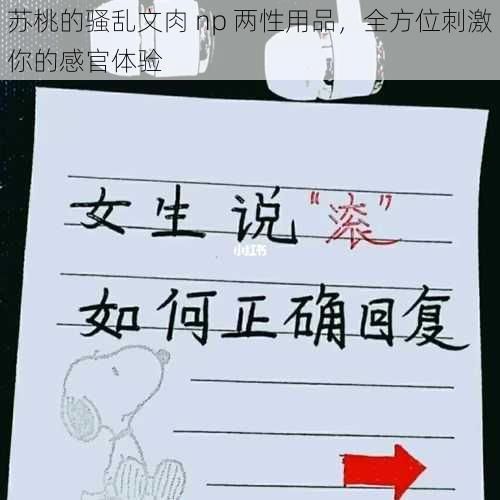 苏桃的骚乱文肉 np 两性用品，全方位刺激
你的感官体验
女生说“滚”
小红书
如何正确回复